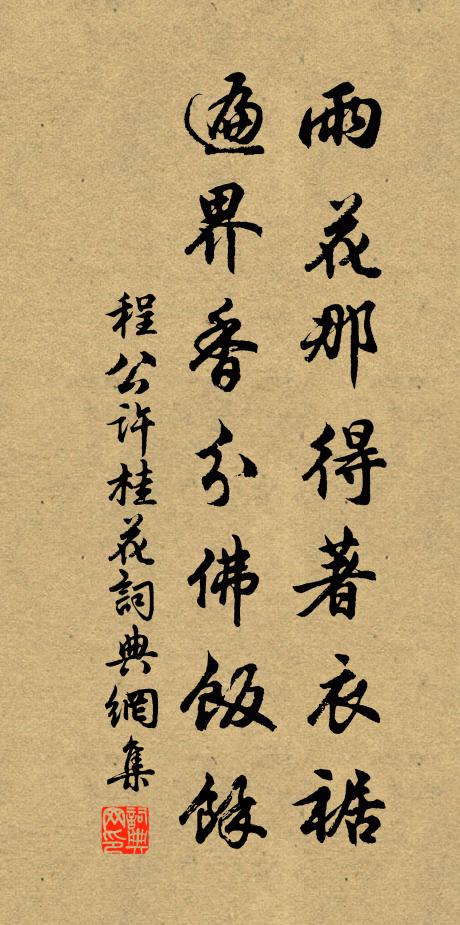 雨花那得著衣裾
遍界香分佛飯餘
程公许桂花詞典網集
詞典网印